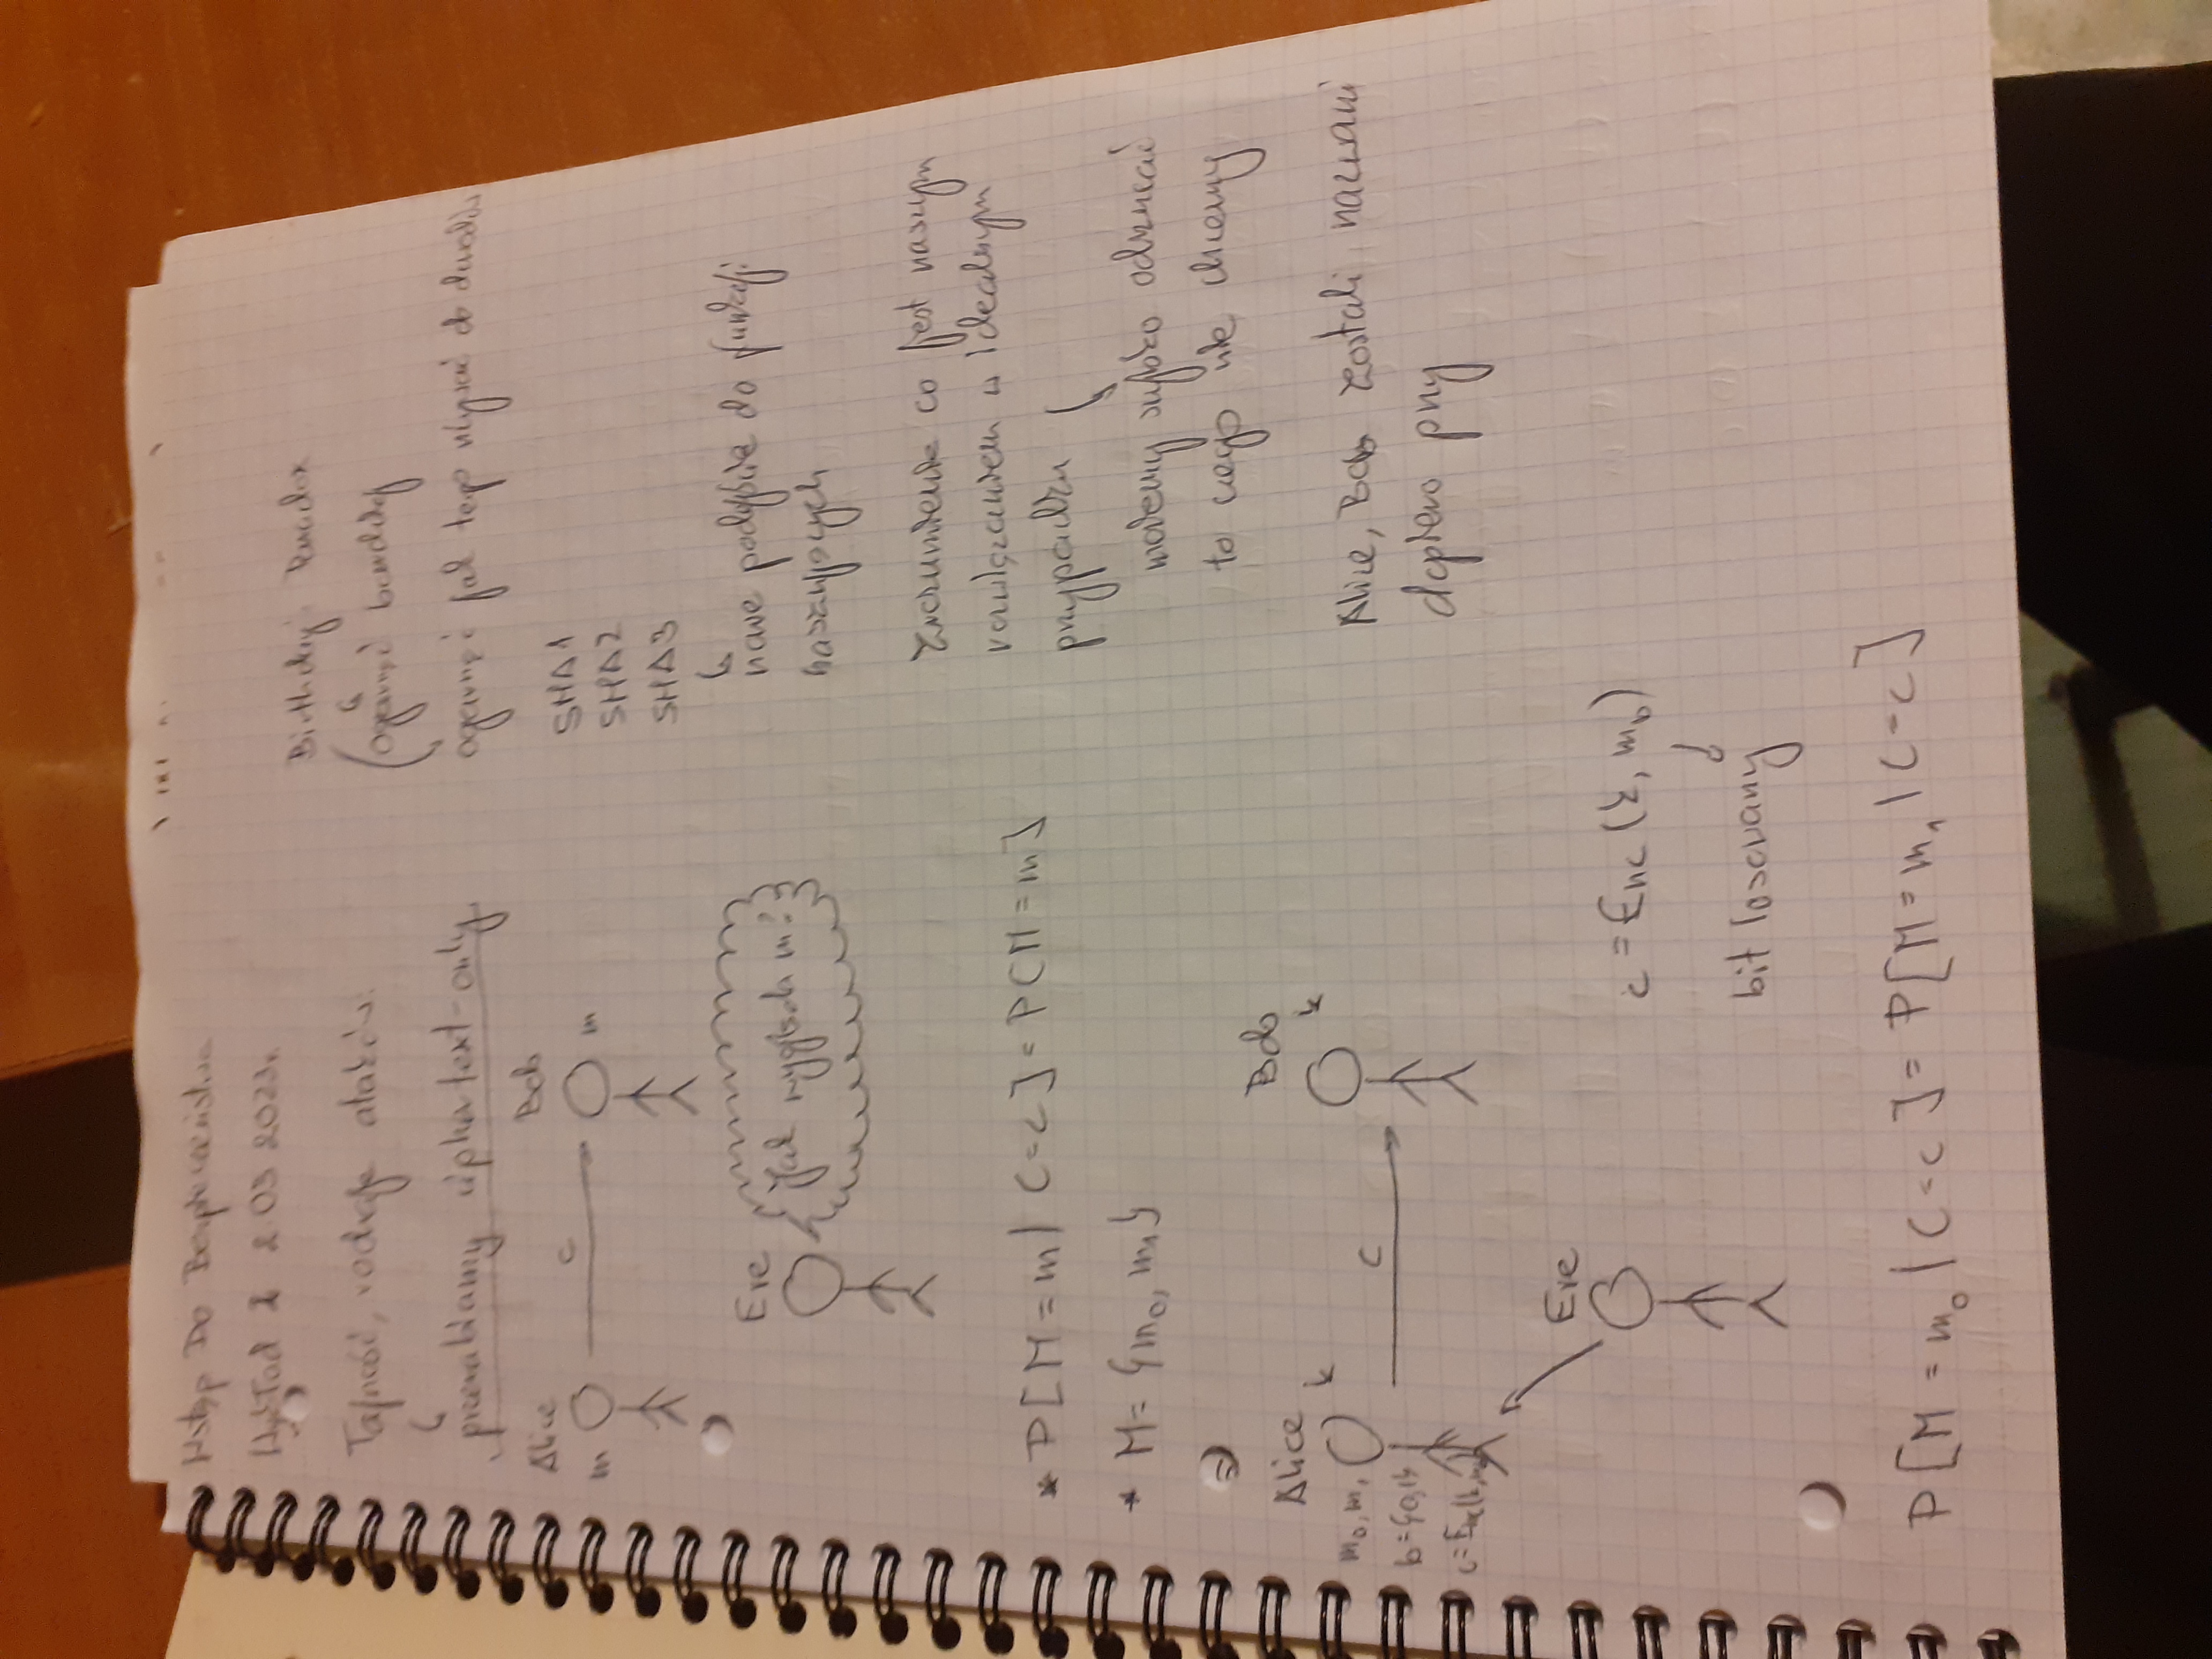 Wstęp Do Bezpieczeństwa
Wykład 2 2.03 2023r.
Tajność, rodzaje ataków:
przerabiamy ciphertext-only
Alice
Bob
m
c
m
Eve
Jak wygląda m?
* P[M = m | C = c] = P[M = m]
* M = {m₀, m₁}
Alice
k
Bob
k
m₀, m₁
b = {0,1}
c = Enc(k, m
c
Eve
c = Enc(k, m_b)
bit losowany
P[M = m₀ | C = c] = P[M = m₁ | C = c]
Birthday Paradox
ogarnąć bardziej
ogarnąć jak tego używać do dowodów
SHA1
SHA2
SHA3
nowe podejście do funkcji
haszujących
Zrozumienie co jest naszym
rozwiązaniem w idealnym
przypadku
możemy szybko odrzucać
to czego nie chcemy
Alice, Bob zostali nazwani
dopiero przy